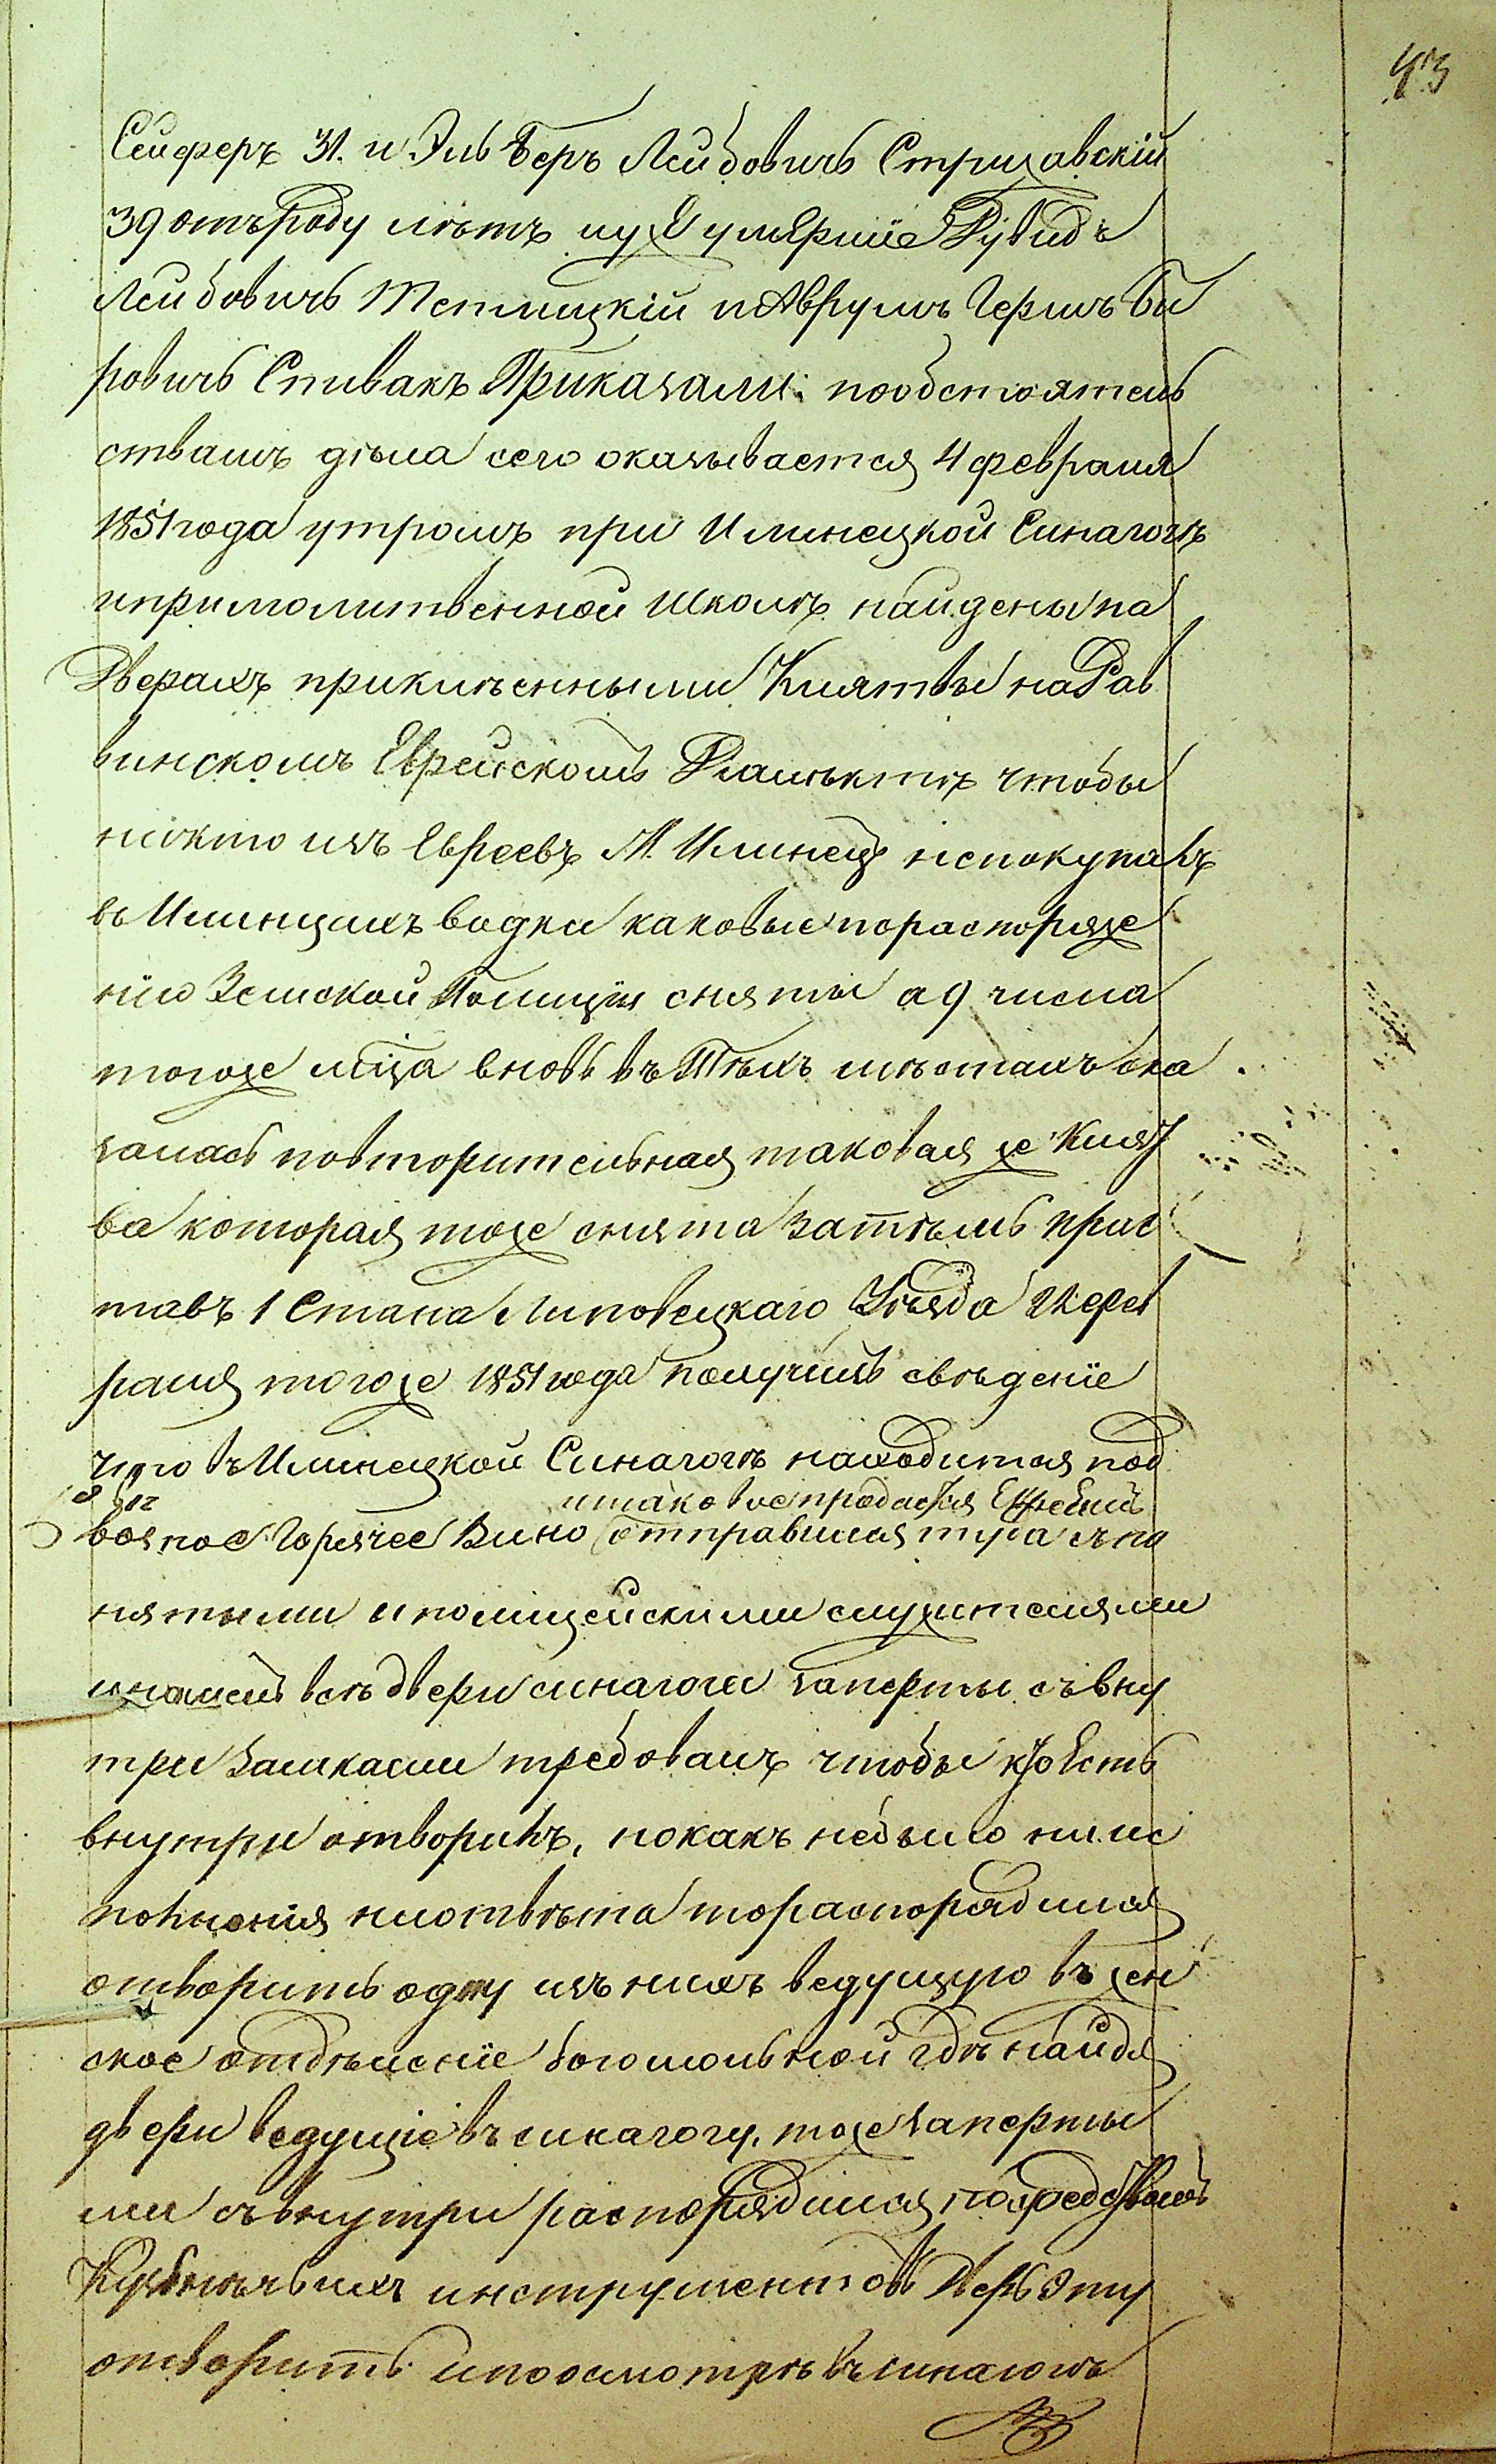 43
Сейферъ 31. и Эль Беръ Лейбовичъ Стрижавскiй
39 отъ роду лѣтъ, ужЕ умЕршiе Рувидъ
Лейбовичъ Тетлицкiй и Аврумъ Гершъ Бе
ровичъ Спивакъ Приказали: пообстоятель
ствамъ дѣла сего оказывается 4 февраля
1851 года утромъ при Илинецкой Синагогѣ
ипримолитвенной Школѣ найдены на
Дверахъ приклѣенными Клятвы на Рав
винскомъ Еврейскомъ Дıалѣктѣ чтобы
никто изъ Евреевъ М. Илинецъ непокупалъ
въ Илинцахъ водки каковые пораспоряже
нiю Земской Полицiи сняты а 9 числа
тогоже мѣца вновь въ Тѣхъ мѣстахъ ока
залась повторительная таковая же Клят
ва которая тоже снята Затѣмъ прис
тавъ 1 Стана Липовецкаго Уѣзда 14 фев
раля тогоже 1851 года получивъ свѣденiе
что въ Илинецкой Синагогѣ находится под
итаковое продается Евреями
возное Горячее Вино отправился туда съ по
нятыми и полицейскими служителями
инашелъ всѣ двери синагоги заперты съвну
три Замками требовалъ чтобы кто Есть
внутри отворилъ, нокакъ небыло ни ис
полненiя ниотвѣта тораспорядился
отворить одну изъ нихъ ведущую въ жен
ское отдѣленiе богомольной гдѣ найдя
двери ведущiе въ синагогу, тоже заперты
ми съвнутри распорядился посредствомъ
Кузнѣчьихъ инструментовъ Дверь Эту
отворить ипоосмотрѣ въ синагогѣ